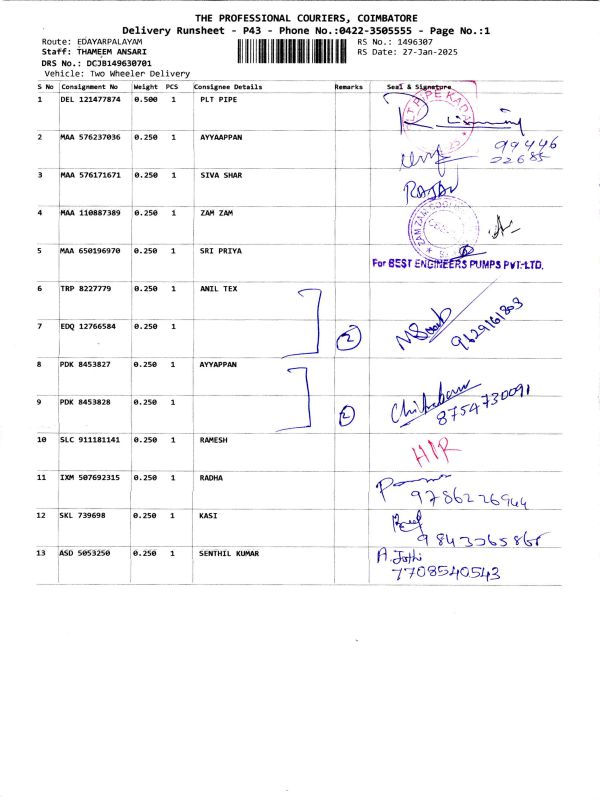 THE PROFESSIONAL COURIERS, COIMBATORE
Delivery Runsheet - P43 - Phone No.:0422-3505555 - Page No.:1
Route: EDAYARPALAYAM RS No.: 1496307
Staff: THAMEEM ANSARI RS Date: 27-Jan-2025
DRS No.: DCJB149630701
Vehicle: Two Wheeler Delivery
S No Consignment No Weight PCS Consignee Details Remarks Seal & Signature
1 DEL 121477874 0.500 1 PLT PIPE
2 MAA 576237036 0.250 1 AYYAAPPAN 99446
22685
3 MAA 576171671 0.250 1 SIVA SHAR RAJAN
4 MAA 110887389 0.250 1 ZAM ZAM ZAM ZAM
5 MAA 650196970 0.250 1 SRI PRIYA
For BEST ENGINEERS PUMPS PVT-LTD.
6 TRP 8227779 0.250 1 ANIL TEX
7 EDQ 12766584 0.250 1 2 9629161803
8 PDK 8453827 0.250 1 AYYAPPAN
9 PDK 8453828 0.250 1 2 8754730091
10 SLC 911181141 0.250 1 RAMESH H/R
11 IXM 507692315 0.250 1 RADHA
9786226944
12 SKL 739698 0.250 1 KASI
13 ASD 5053250 0.250 1 SENTHIL KUMAR A. Jothi
7708540543